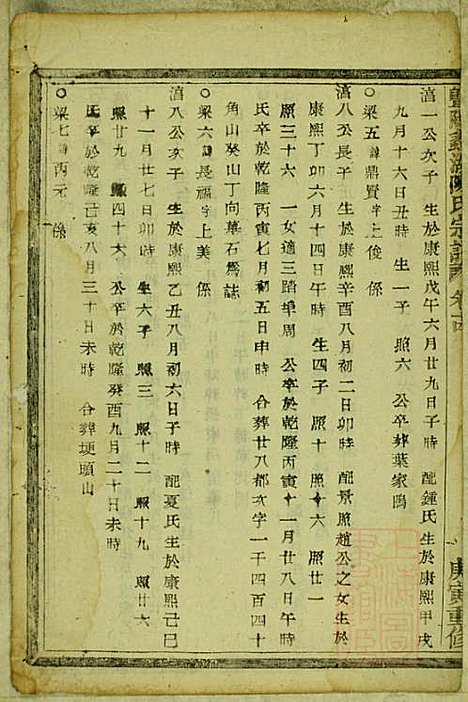 暨陽 陳氏宗譜 卷十四
庚寅重修
湻一公次子 生於康熙戊午六月廿九日子時 配鍾氏生於康熙甲戌
九月十六日丑時 生一子 照六 公卒葬葉家塢
○梁五諱鼎賢字上俊 係
湻八公長子 生於康熙辛酉八月初二日卯時 配景照趙公之女生於
康熙丁卯六月十四日午時 生四子 照十 照十六 照廿一
照三十六 一女適三踏埠周 公卒於乾隆丙寅十一月廿八日午時
氏卒於乾隆丙寅七月初五日申時 合葬廿八都次字一千四百四十
角山癸山丁向華石為誌
○梁六諱長福字上美 係
湻八公次子 生於康熙乙丑八月初六日子時 配夏氏生於康熙己巳
十一月廿七日卯時 生六子 照三 照十二 照十九 照廿六
照廿九 照四十六 公卒於乾隆癸酉九月二十日未時
氏卒於乾隆己亥八月三十日未時 合葬埂頭山
○梁七諱丙元 係